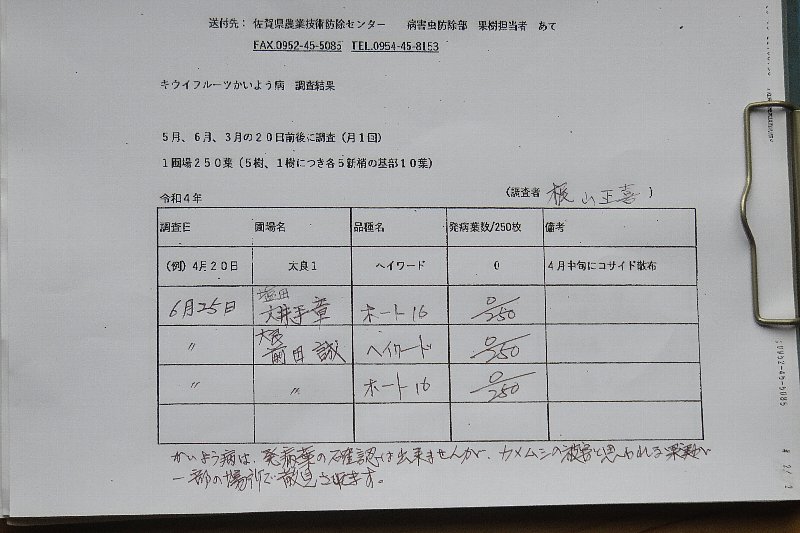 送付先： 佐賀県農業技術防除センター 病害虫防除部 果樹担当者 あて
FAX.0952-45-5085 TEL.0954-45-8153
キウイフルーツかいよう病 調査結果
5月、6月、3月の20日前後に調査（月1回）
1圃場250葉（5樹、1樹につき各5新梢の基部10葉）
令和4年 （調査者 梶山正喜 ）
調査日 圃場名 品種名 発病葉数/250枚 備考
（例）4月20日 太良1 ヘイワード 0 4月中旬にコサイド散布
塩田
6月25日 大井手章 ホート16 0/250
太良
〃 前田誠 ヘイワード 0/250
〃 〃 ホート16 0/250
かいよう病は、発病葉の確認は出来ませんが、カメムシの被害と思われる果実が
一部の場所で散見されます。